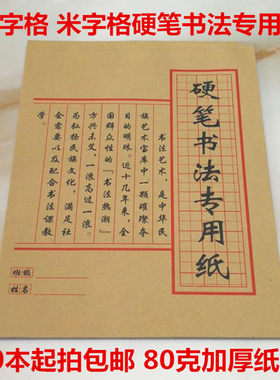 字格 米字格硬笔书法专用
硬笔书法专用纸
书法艺术，是中华民
族艺术宝库中一颗璀璨夺
目的明珠。近十几年来，全
国群众性的『书法热潮』
方兴未艾，一浪高过一浪。
为弘扬民族文化，满足社
会需要以及配合书法课教
学。
班级
姓名
0本起拍包邮 80克加厚纸